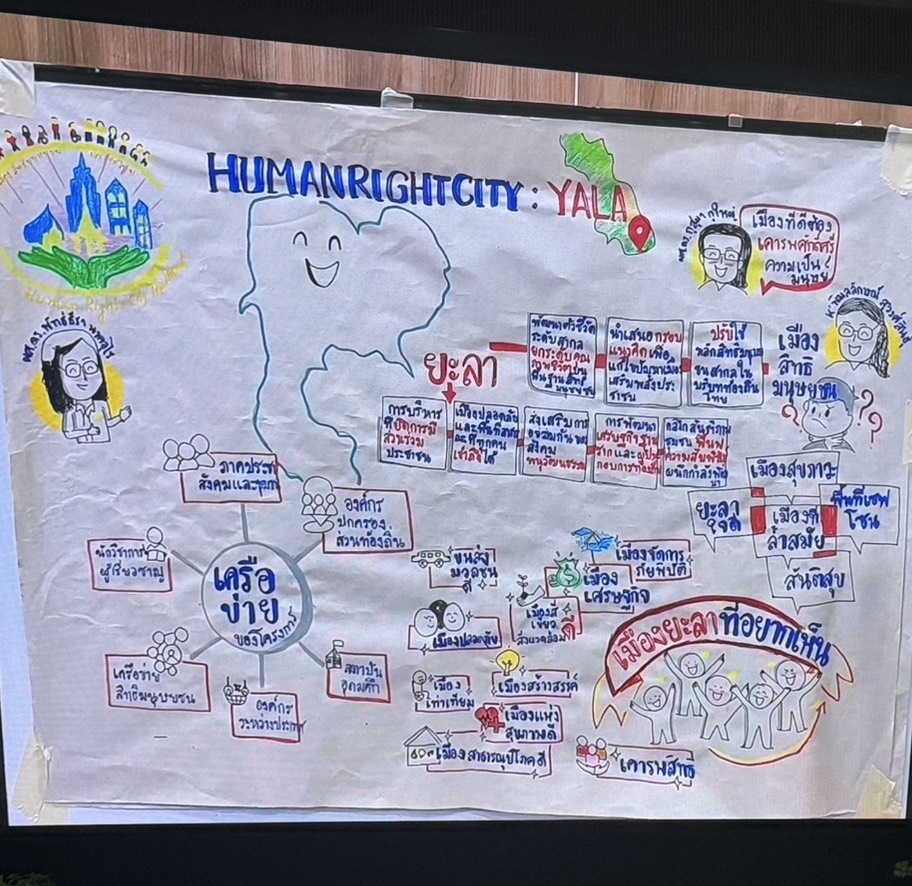 HUMAN RIGHT CITY : YALA
เมืองที่ดีต้อง
เคารพศักดิ์ศรี
ความเป็น
มนุษย์
เมือง
สิทธิ
มนุษยชน
ยะลา
พัฒนาตัวชี้วัด
ระดับสากล
ยกระดับคุณ
ภาพชีวิตบน
พื้นฐานสิทธิ
มนุษยชน
นำเสนอกรอบ
แนวคิดเพื่อ
แก้ไขปัญหาเมือง
เสริมพลังประ
ชาชน
ปรับใช้
หลักสิทธิมนุษย
ชนสากลใน
บริบทท้องถิ่น
ไทย
การบริหาร
จัดการมี
ส่วนร่วม
ประชาชน
เมืองปลอดภัย
และพื้นที่
ทุกคน
เข้าถึงได้
ส่งเสริมการ
อยู่ร่วมกันของ
สังคม
พหุวัฒนธรรม
การพัฒนา
เศรษฐกิจฐาน
รากและผู้ประ
กอบการท้องถิ่น
กลไกสันติภาพ
ชุมชน ฟื้นฟู
ความสัมพันธ์
ผนึกกำลังพัฒนา
เมืองสุขภาวะ
ยะลา
เมืองที่
ล้ำสมัย
พื้นที่เซฟ
โซน
สันติสุข
ภาคประชา
สังคมและชุมชน
องค์กร
ปกครอง
ส่วนท้องถิ่น
นักวิชาการ
ผู้เชี่ยวชาญ
เครือ
ข่าย
ของโครงการ
เครือข่าย
สิทธิมนุษยชน
องค์กร
ระหว่างประเทศ
สถาบัน
อุดมศึกษา
ขนส่ง
มวลชน
ดี
เมืองจัดการ
ภัยพิบัติ
เมือง
เศรษฐกิจ
เมืองสี
เขียว
สิ่งแวดล้อมดี
เมืองปลอดภัย
เมือง
เท่าเทียม
เมืองสร้างสรรค์
เมืองแห่ง
สุขภาพดี
เมืองสาธารณูปโภคดี
เคารพสิทธิ
เมืองยะลาที่อยากเห็น